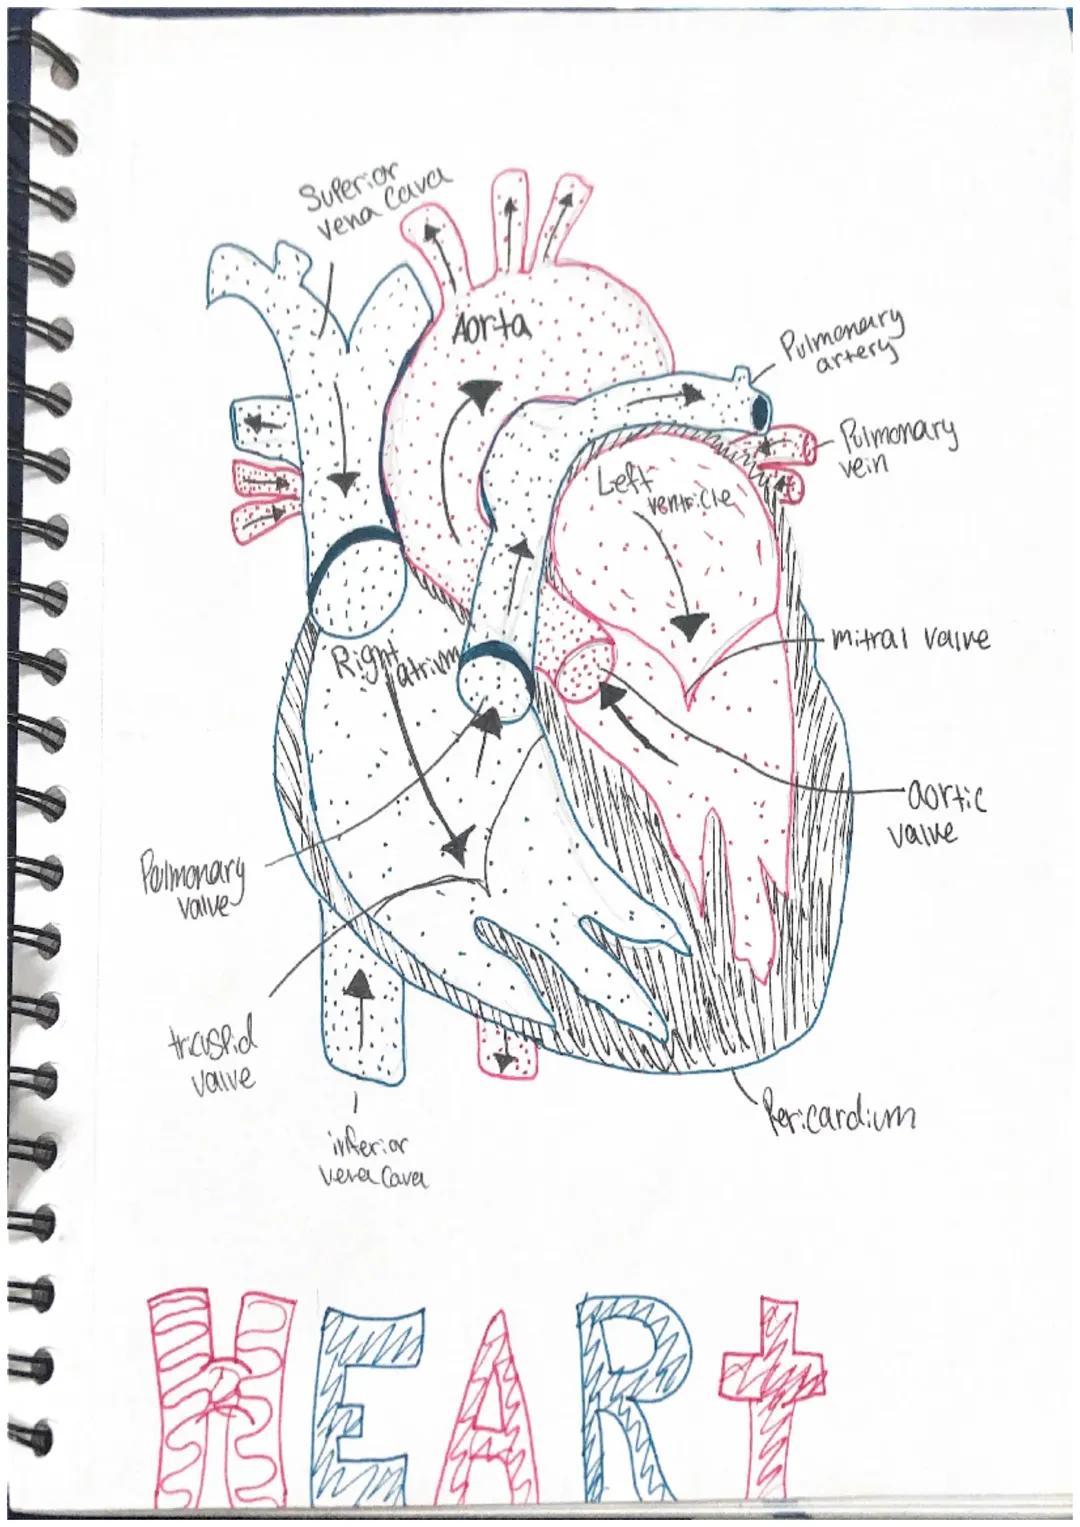 Superior
vena cava
Aorta
Pulmonary
artery
Pulmonary
vein
Left
ventricle
mitral valve
Right
atrium
aortic
valve
Pulmonary
valve
tricuspid
valve
Pericardium
inferior
vena cava
HEARt